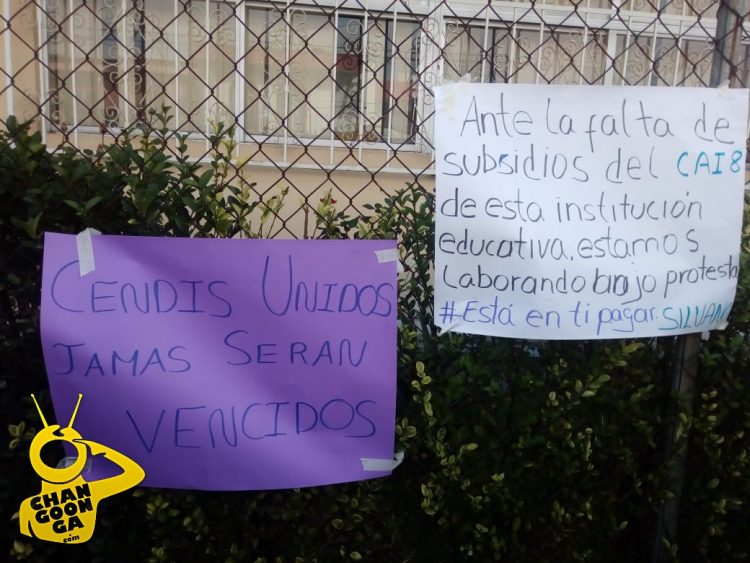 CENDIS UNIDOS
JAMAS SERAN
VENCIDOS
Ante la falta de
subsidios del CAI 8
de esta institución
educativa, estamos
laborando bajo protesta
#Está en ti pagar. SILVANO
CHAN
GOON
GA
.com